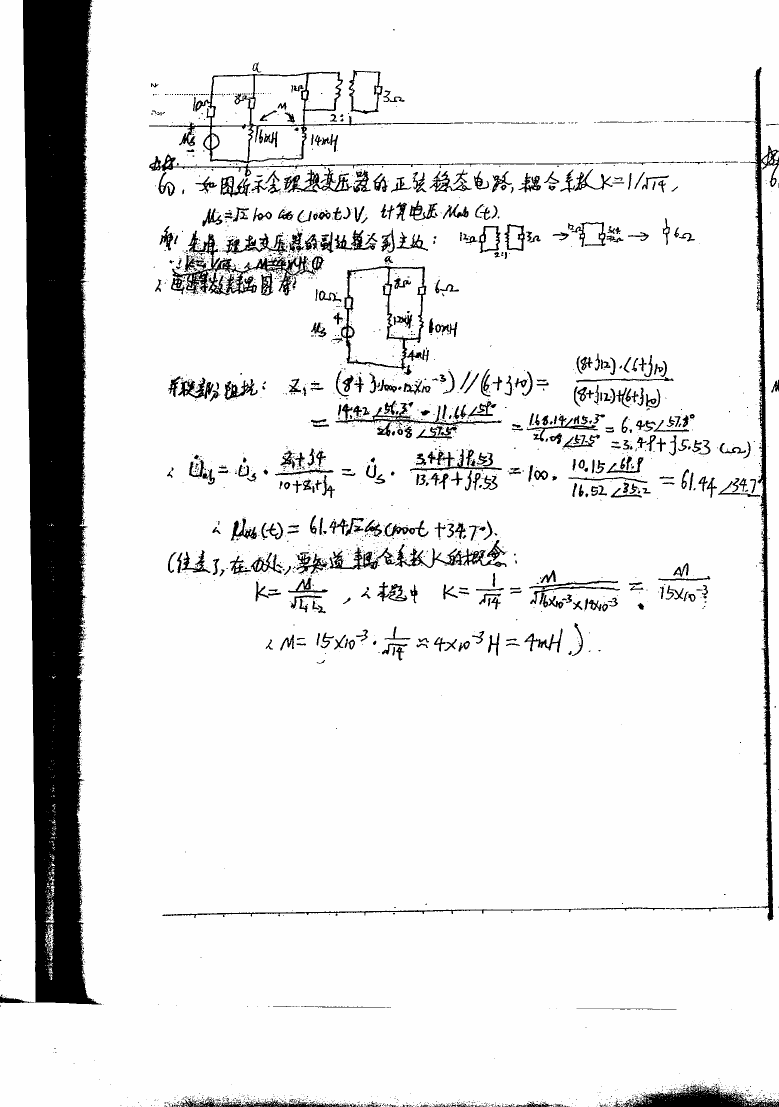 a
10Ω 8Ω 12Ω 3Ω
M 2:1
Us 16mH 14mH
b
如图所示含理想变压器的正弦稳态电路,耦合系数K=1/√14,
Us=√2 100 cos(1000t)V, 计算电压Uab(t).
理想变压器的副边整合到主边: 12Ω 3Ω 2:1 → 12Ω → 6Ω
a
10Ω 8Ω 6Ω
Us 12mH 10mH
4mH
并联部分阻抗: Z₁=(8+j·1000·12×10⁻³)//(6+j10)=(8+j12)·(6+j10)/(8+j12)+(6+j10)
=14.42∠56.3°·11.66∠59°/26.08∠57.5°=168.14∠115.3°/26.08∠57.5°=6.45∠57.8°
=3.49+j5.53(Ω)
∴U̇ab=U̇s·Z₁+j4/10+Z₁+j4=U̇s·3.49+j9.53/13.49+j9.53=100·10.15∠69.9/16.52∠35.2=61.44∠34.7°
∴Uab(t)=61.44√2cos(1000t+34.7°).
要知道耦合系数K的概念:
K=M/√L₁L₂, ∴本题中 K=1/√14=M/√16×10⁻³×14×10⁻³=M/15×10⁻³
∴M=15×10⁻³·1/√14≈4×10⁻³H=4mH.)